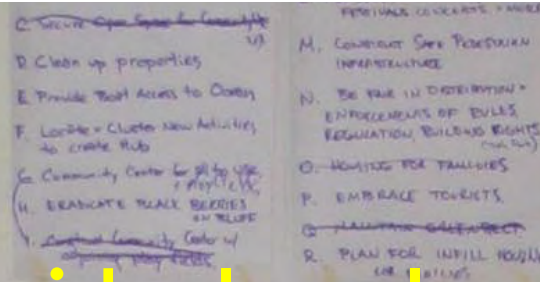 C. SECURE Open Space for Community
D. Clean up properties
E. Provide Boat Access to Ocean
F. Locate + Cluster New Activities
to create Hub
G. Community Center for all to use,
H. ERADICATE BLACK BERRIES
ON BLUFF
I. Construct Community Center w/
adjoining play fields
FESTIVALS CONCERTS + MORE
M. CONSTRUCT SAFE PEDESTRIAN
INFRASTRUCTURE
N. BE FAIR IN DISTRIBUTION +
ENFORCEMENTS OF RULES,
REGULATION, BUILDING RIGHTS
O. HOUSING FOR FAMILIES
P. EMBRACE TOURISTS
Q. MAINTAIN
R. PLAN FOR INFILL HOUSING
FOR FAMILIES